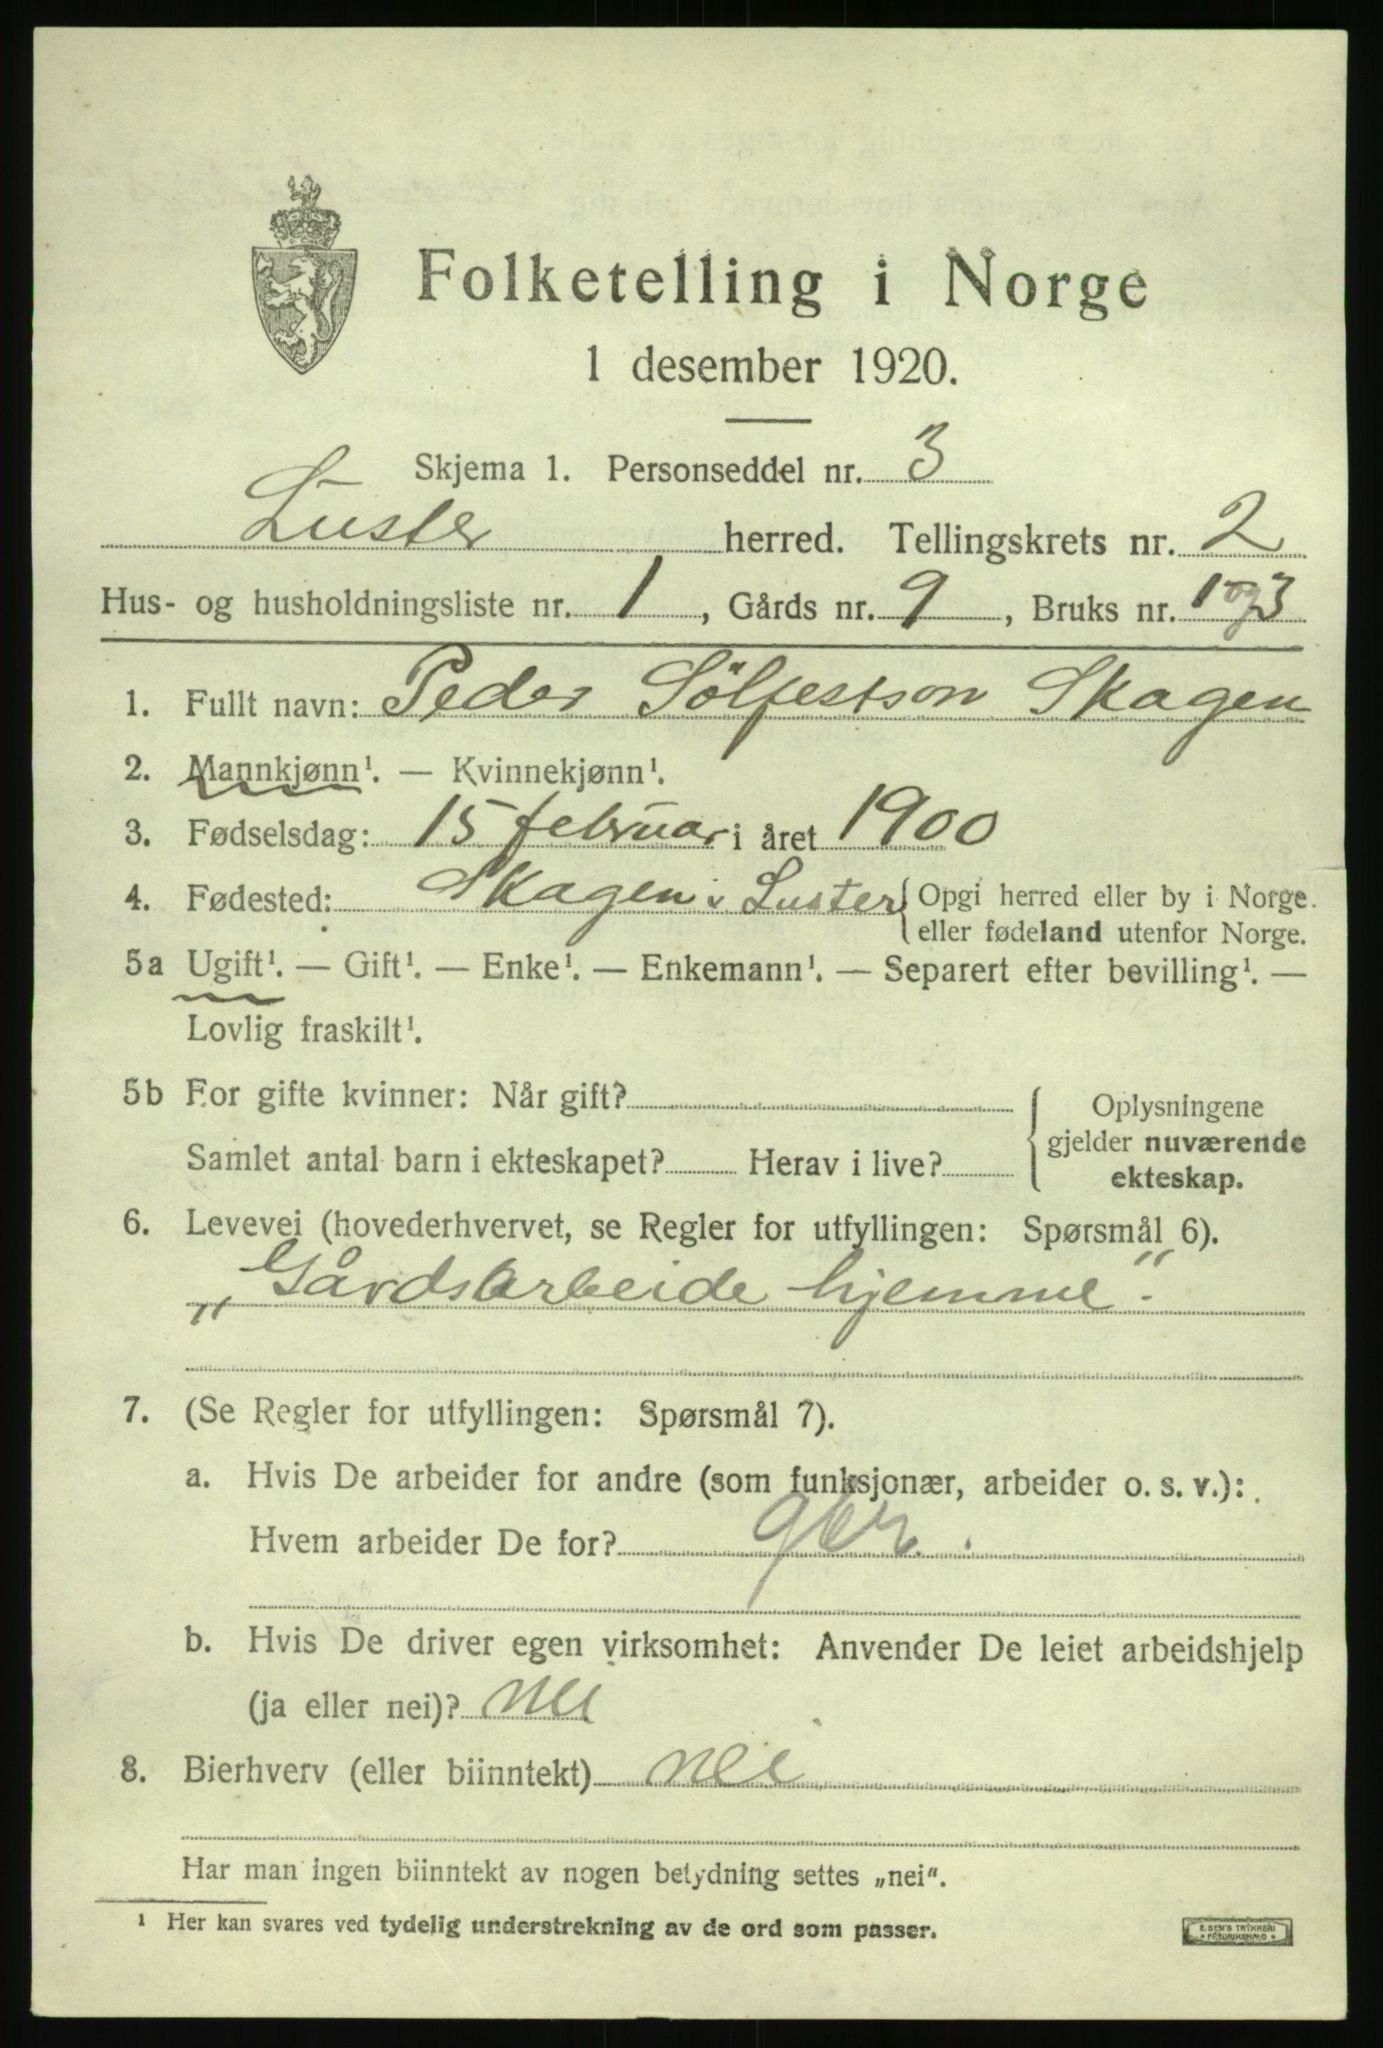 Folketelling i Norge
1 desember 1920.
Skjema 1. Personseddel nr. 3
Luster herred. Tellingskrets nr. 2
Hus- og husholdningsliste nr. 1, Gårds nr. 9, Bruks nr. 1 og 3
1. Fullt navn: Peder Sölfestson Skagen
2. Mannkjønn¹. — Kvinnekjønn¹.
3. Fødselsdag: 15 februar i året 1900
4. Fødested: Skagen i Luster { Opgi herred eller by i Norge.
eller fødeland utenfor Norge.
5a Ugift¹. — Gift¹. — Enke¹. — Enkemann¹. — Separert efter bevilling¹. —
Lovlig fraskilt¹.
5b For gifte kvinner: Når gift?
Samlet antal barn i ekteskapet? Herav i live?
Oplysningene
gjelder nuværende
ekteskap.
6. Levevei (hovederhvervet, se Regler for utfyllingen: Spørsmål 6).
„Gårdsarbeide hjemme“.
7. (Se Regler for utfyllingen: Spørsmål 7).
a. Hvis De arbeider for andre (som funksjonær, arbeider o. s. v.):
Hvem arbeider De for?
b. Hvis De driver egen virksomhet: Anvender De leiet arbeidshjelp
(ja eller nei)? nei
8. Bierhverv (eller biinntekt) nei
Har man ingen biinntekt av nogen betydning settes „nei“.
¹ Her kan svares ved tydelig understrekning av de ord som passer.
E. SEM'S TRYKKERI
FREDRIKSHALD